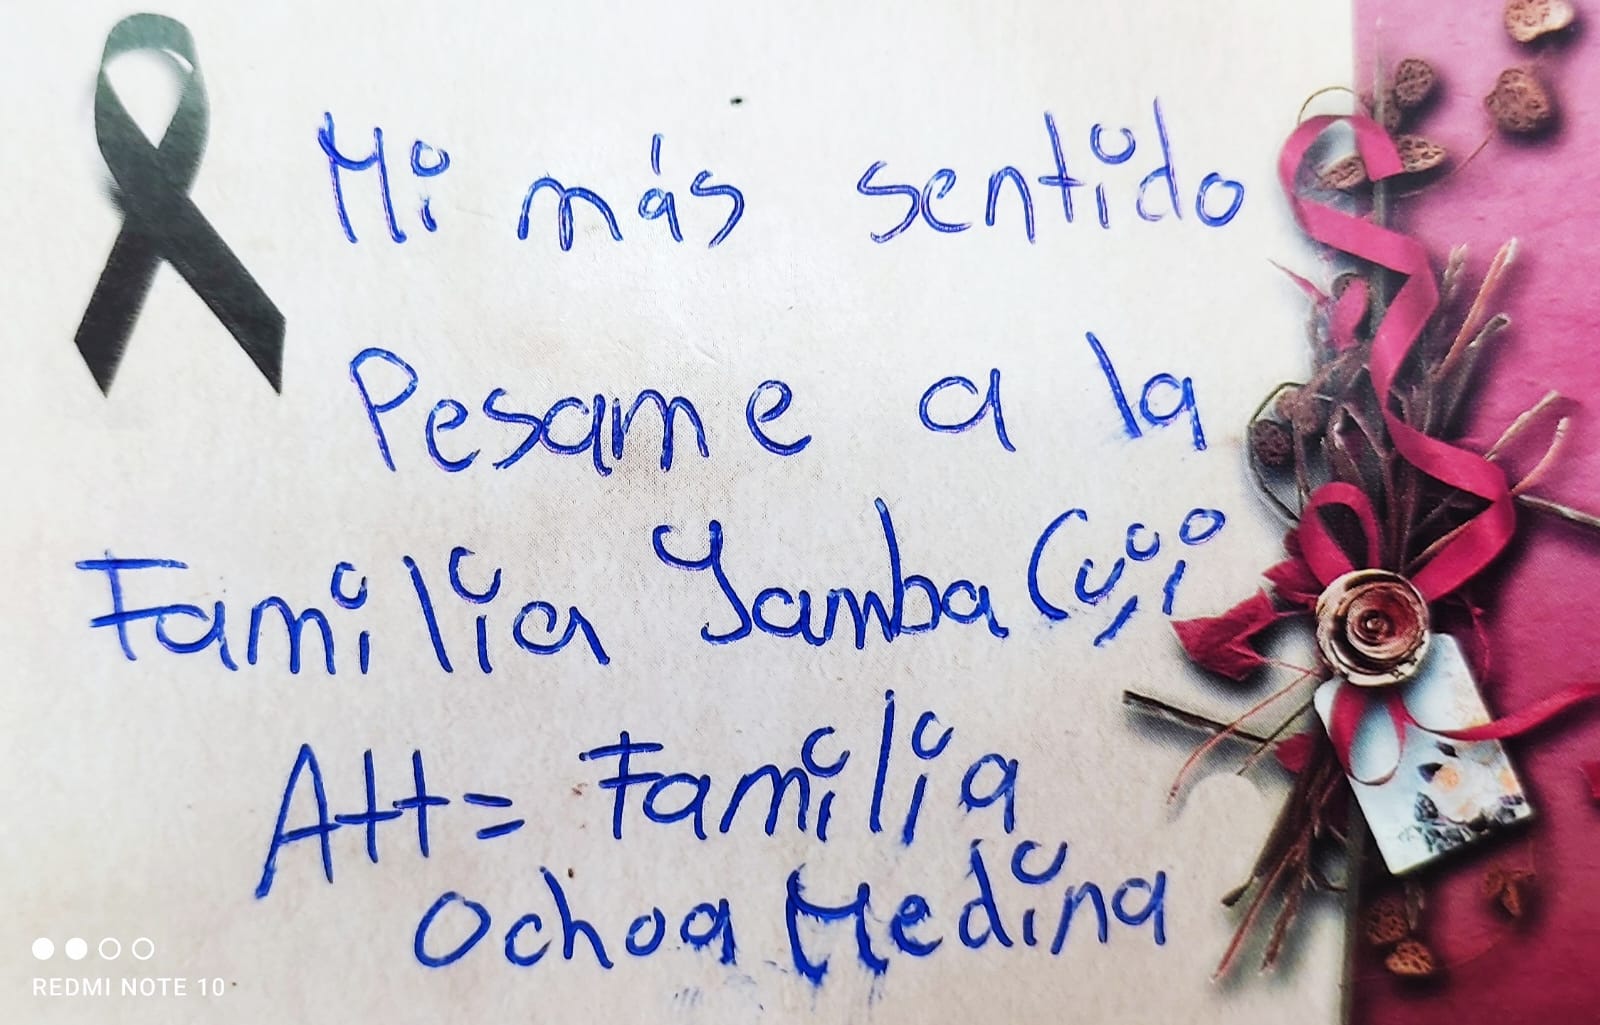 Mi más sentido
Pesame a la
Familia Yamba Cuji
Att= Familia
Ochoa Medina
REDMI NOTE 10